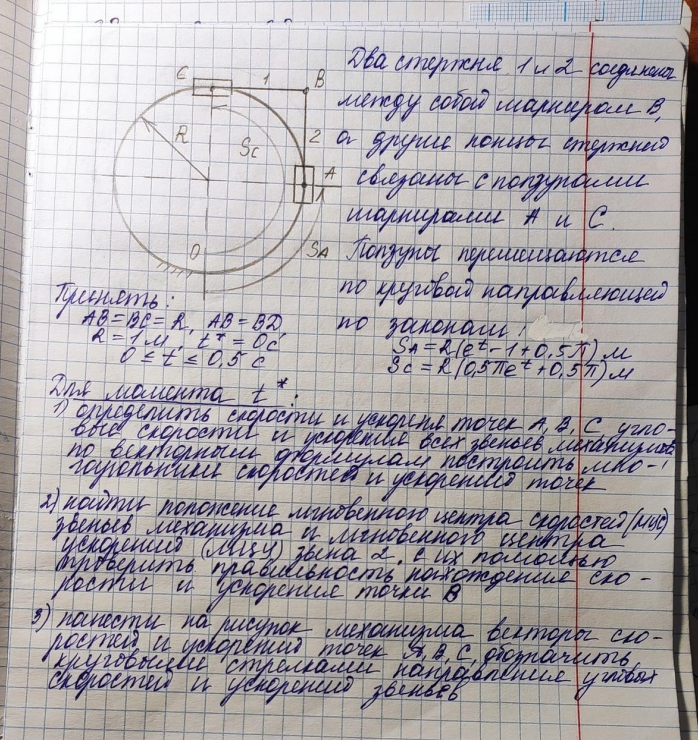 C
1
B
Два стержня 1 и 2 соединены
между собой шарниром B,
R
Sc
2
а другие концы стержней
A
связаны с ползунами
шарнирами A и C.
O
SA
Ползуны перемещаются
по круговой направляющей
по законам:
SA = R(e^t - 1 + 0,5π) м
Sc = R(0,5πe^t + 0,5π) м
Принять:
AB = BC = R, AB = BD,
R = 1 м, t* = 0с
0 ≤ t ≤ 0,5 с
Для момента t*:
1) определить скорости и ускорения точек A, B, C угло-
вые скорости и ускорения всех звеньев механизма
по векторным формулам построить мно-
гоугольники скоростей и ускорений точек
2) найти положение мгновенного центра скоростей (МЦС)
звеньев механизма и мгновенного центра
ускорений (МЦУ) звена 2. с их помощью
проверить правильность нахождения ско-
рости и ускорения точки B
3) нанести на рисунок механизма векторы ско-
ростей и ускорений точек A, B, C, обозначить
круговыми стрелками направления угловых
скоростей и ускорений звеньев